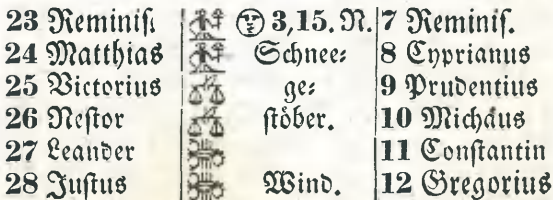 23 Reminiſ. 3,15. N. 7 Reminiſ.
24 Matthias Schnee⸗ 8 Cyprianus
25 Victorius ge⸗ 9 Prudentius
26 Neſtor ſtöber. 10 Michäus
27 Leander 11 Conſtantin
28 Juſtus Wind. 12 Gregorius